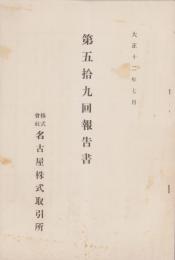 大正十二年七月
第五拾九回報告書
株式會社名古屋株式取引所